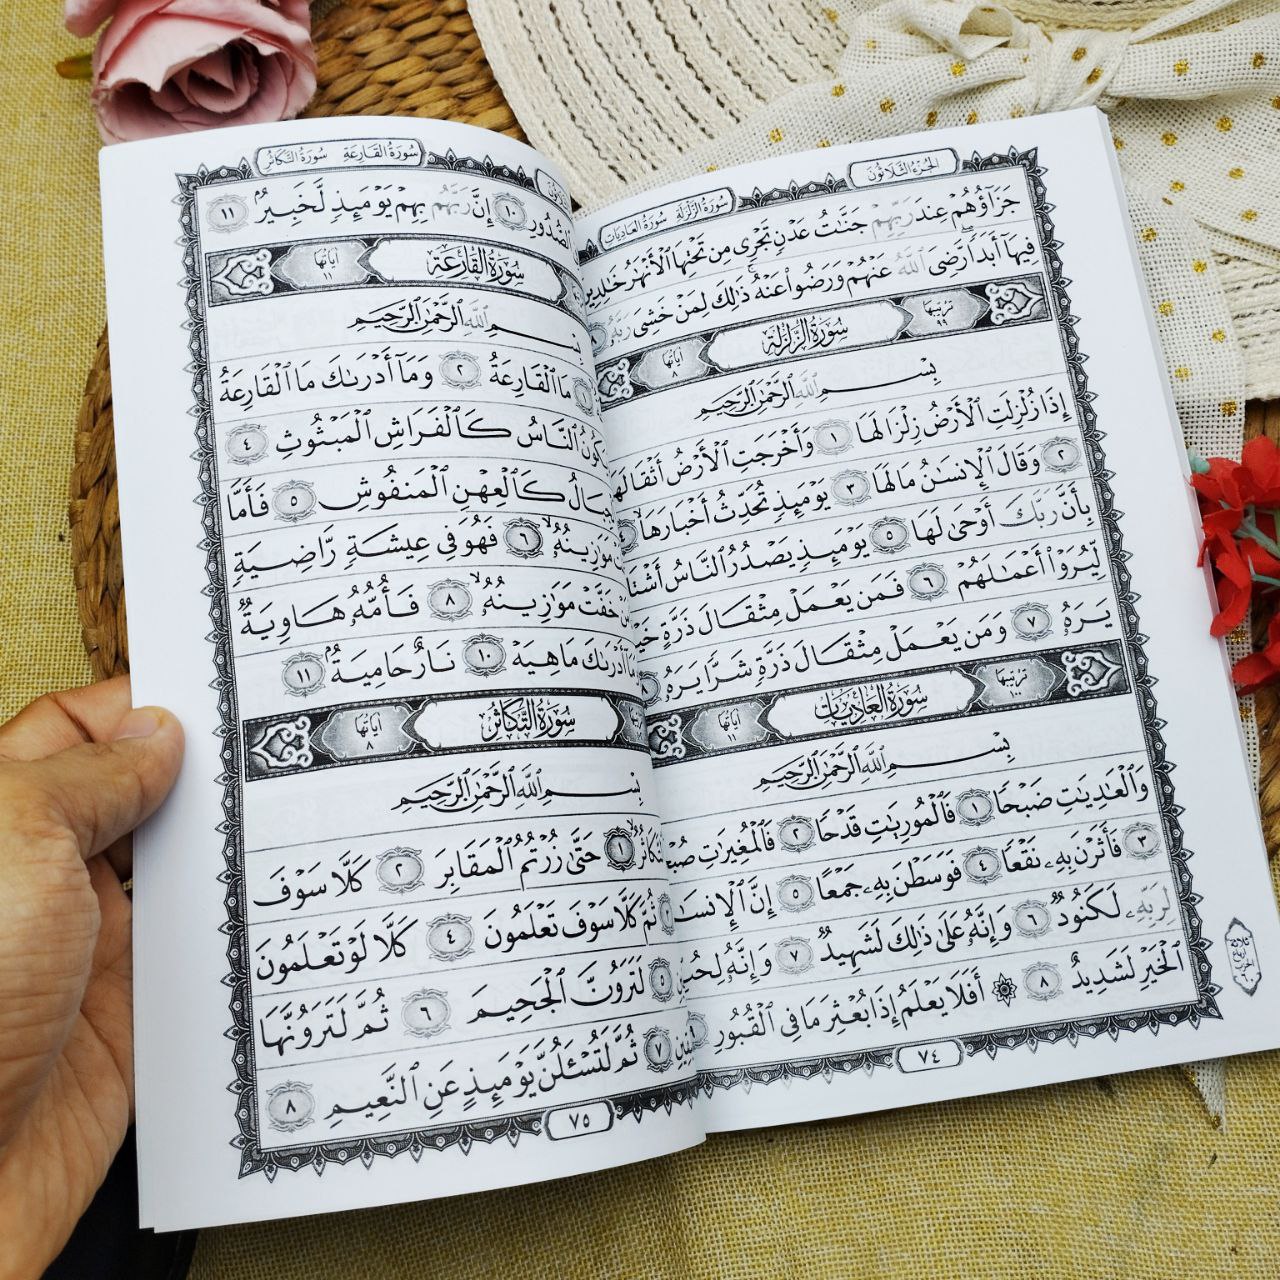 الجزء الثلاثون
سورة الزلزلة سورة العاديات
جَزَآؤُهُمۡ عِندَ رَبِّهِمۡ جَنَّٰتُ عَدۡنٖ تَجۡرِي مِن تَحۡتِهَا ٱلۡأَنۡهَٰرُ خَٰلِدِينَ
فِيهَآ أَبَدٗاۖ رَّضِيَ ٱللَّهُ عَنۡهُمۡ وَرَضُواْ عَنۡهُۚ ذَٰلِكَ لِمَنۡ خَشِيَ رَبَّهُۥ ٨
ترتيبها ٩٩ سُورَةُ الزَّلْزَلَةِ آياتها ٨
بِسۡمِ ٱللَّهِ ٱلرَّحۡمَٰنِ ٱلرَّحِيمِ
إِذَا زُلۡزِلَتِ ٱلۡأَرۡضُ زِلۡزَالَهَا ١ وَأَخۡرَجَتِ ٱلۡأَرۡضُ أَثۡقَالَهَا
٢ وَقَالَ ٱلۡإِنسَٰنُ مَا لَهَا ٣ يَوۡمَئِذٖ تُحَدِّثُ أَخۡبَارَهَا ٤
بِأَنَّ رَبَّكَ أَوۡحَىٰ لَهَا ٥ يَوۡمَئِذٖ يَصۡدُرُ ٱلنَّاسُ أَشۡتَا
لِّيُرَوۡاْ أَعۡمَٰلَهُمۡ ٦ فَمَن يَعۡمَلۡ مِثۡقَالَ ذَرَّةٍ خَيۡ
يَرَهُۥ ٧ وَمَن يَعۡمَلۡ مِثۡقَالَ ذَرَّةٖ شَرّٗا يَرَهُۥ ٨
ترتيبها ١٠٠ سُورَةُ العَادِيَاتِ آياتها ١١
بِسۡمِ ٱللَّهِ ٱلرَّحۡمَٰنِ ٱلرَّحِيمِ
وَٱلۡعَٰدِيَٰتِ ضَبۡحٗا ١ فَٱلۡمُورِيَٰتِ قَدۡحٗا ٢ فَٱلۡمُغِيرَٰتِ صُبۡحٗا
٣ فَأَثَرۡنَ بِهِۦ نَقۡعٗا ٤ فَوَسَطۡنَ بِهِۦ جَمۡعًا ٥ إِنَّ ٱلۡإِنسَٰنَ
لِرَبِّهِۦ لَكَنُودٞ ٦ وَإِنَّهُۥ عَلَىٰ ذَٰلِكَ لَشَهِيدٞ ٧ وَإِنَّهُۥ لِحُبِّ
ٱلۡخَيۡرِ لَشَدِيدٌ ٨ ۞ أَفَلَا يَعۡلَمُ إِذَا بُعۡثِرَ مَا فِي ٱلۡقُبُورِ ٩
٧٤
سورة القارعة سورة التكاثر
ٱلصُّدُورِ ١٠ إِنَّ رَبَّهُم بِهِمۡ يَوۡمَئِذٖ لَّخَبِيرُۢ ١١
سُورَةُ القَارِعَةِ آياتها ١١
بِسۡمِ ٱللَّهِ ٱلرَّحۡمَٰنِ ٱلرَّحِيمِ
١ مَا ٱلۡقَارِعَةُ ٢ وَمَآ أَدۡرَىٰكَ مَا ٱلۡقَارِعَةُ
كُونُ ٱلنَّاسُ كَٱلۡفَرَاشِ ٱلۡمَبۡثُوثِ ٤
جِبَالُ كَٱلۡعِهۡنِ ٱلۡمَنفُوشِ ٥ فَأَمَّا
مَوَٰزِينُهُۥ ٦ فَهُوَ فِي عِيشَةٖ رَّاضِيَةٖ
مَنۡ خَفَّتۡ مَوَٰزِينُهُۥ ٨ فَأُمُّهُۥ هَاوِيَةٞ
مَآ أَدۡرَىٰكَ مَا هِيَهۡ ١٠ نَارٌ حَامِيَةُۢ ١١
سُورَةُ التَّكَاثُرِ آياتها ٨
بِسۡمِ ٱللَّهِ ٱلرَّحۡمَٰنِ ٱلرَّحِيمِ
تَّكَاثُرُ ١ حَتَّىٰ زُرۡتُمُ ٱلۡمَقَابِرَ ٢ كَلَّا سَوۡفَ
ثُمَّ كَلَّا سَوۡفَ تَعۡلَمُونَ ٤ كَلَّا لَوۡ تَعۡلَمُونَ
٥ لَتَرَوُنَّ ٱلۡجَحِيمَ ٦ ثُمَّ لَتَرَوُنَّهَا
ٱلۡيَقِينِ ٧ ثُمَّ لَتُسۡـَٔلُنَّ يَوۡمَئِذٍ عَنِ ٱلنَّعِيمِ ٨
٧٥